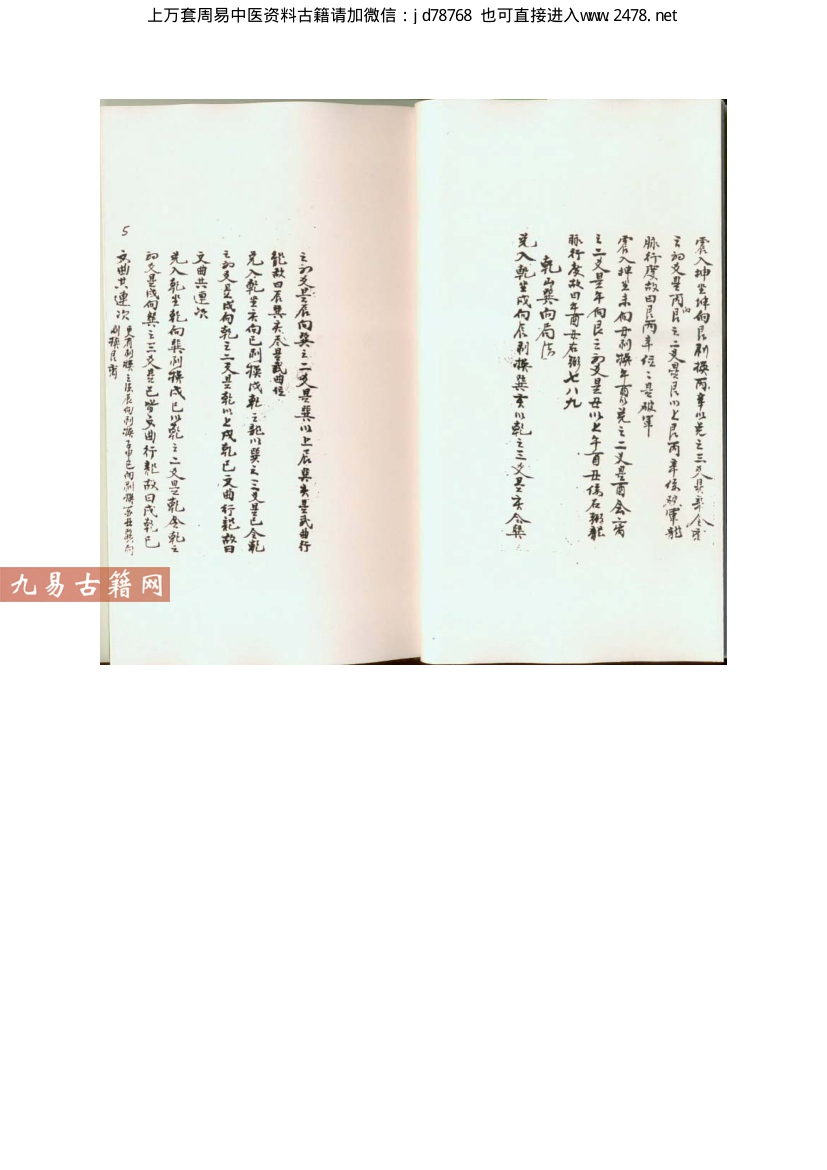 上万套周易中医资料古籍请加微信：jd78768 也可直接进入www.2478.net
震入坤坐坤向艮剃换丙辛以兑之三爻是辛合震
之初爻是丙艮之二爻是艮以上艮丙辛係破軍龍
脉行度故曰艮丙辛位二是破军
震入坤坐未向丑剃换午酉以兑之二爻是酉合离
之二爻是午向艮之初爻是丑以上午酉丑係右弼龍
脉行度故曰午酉丑右弼七八九
乾山巽向局法
兑入乾坐戌向辰剃换巽亥以乾之三爻是亥合巽
之初爻是辰向巽之二爻是巽以上辰巽亥是武曲行
龍故曰辰巽亥尽是武曲位
兑入乾坐亥向巳剃换戌乾之龍以巽之三爻是巳合乾
之初爻是戌向乾之二爻是乾以上戌乾巳文曲行龍故曰
文曲共連次
兑入乾坐乾向巽剃换戌巳以乾之二爻是乾合乾之
初爻是戌向巽之三爻是巳皆文曲行龍故曰戌乾巳
文曲共連次
5
九易古籍网